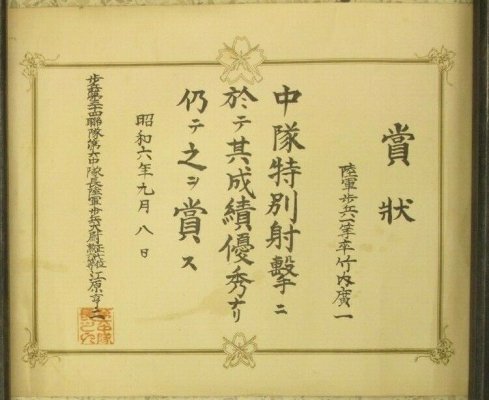 賞状
陸軍歩兵一等卒竹内廣一
中隊特別射擊ニ
於テ其成績優秀ナリ
仍テ之ヲ賞ス
昭和六年九月八日
歩兵第三十四聯隊第六中隊長陸軍歩兵大尉 江原